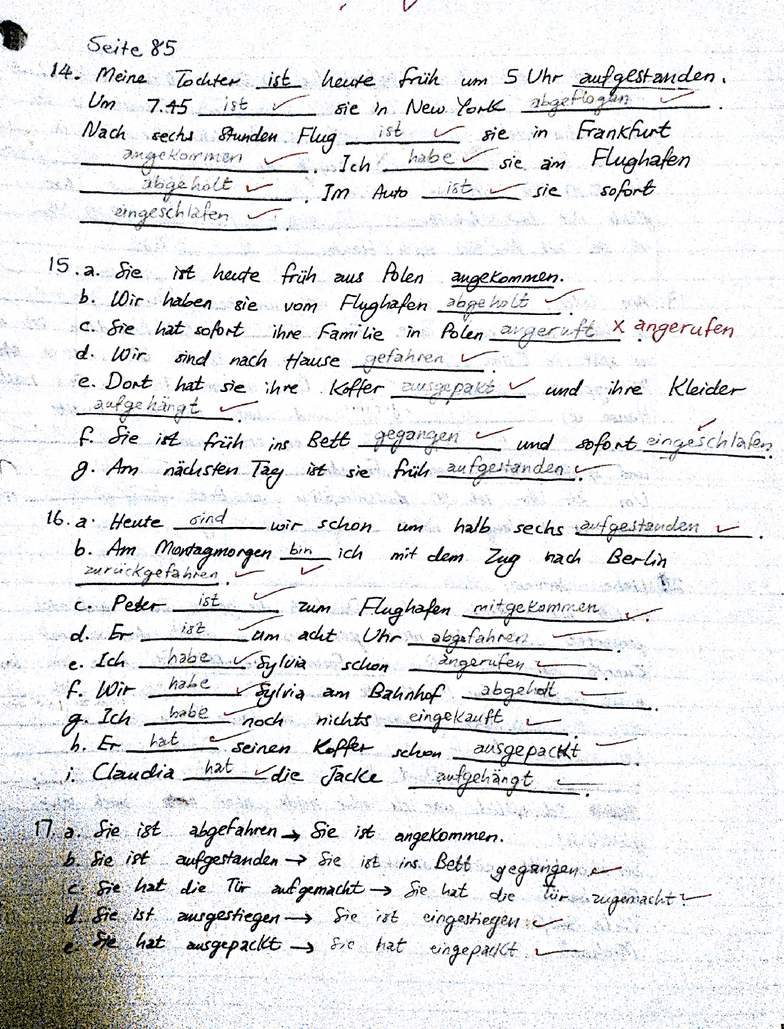 Seite 85
14. Meine Tochter ist heute früh um 5 Uhr aufgestanden.
Um 7.45 ist ✓ sie in New York abgeflogen ✓.
Nach sechs Stunden Flug ist ✓ sie in Frankfurt
angekommen ✓. Ich habe ✓ sie am Flughafen
abgeholt ✓. Im Auto ist ✓ sie sofort
eingeschlafen ✓.
15. a. Sie ist heute früh aus Polen angekommen.
b. Wir haben sie vom Flughafen abgeholt ✓.
c. Sie hat sofort ihre Familie in Polen angeruft x angerufen
d. Wir sind nach Hause gefahren ✓.
e. Dort hat sie ihre Koffer ausgepakt ✓ und ihre Kleider
aufgehängt ✓.
f. Sie ist früh ins Bett gegangen ✓ und sofort eingeschlafen ✓.
g. Am nächsten Tag ist sie früh aufgestanden ✓.
16. a. Heute sind wir schon um halb sechs aufgestanden ✓.
b. Am Montagmorgen bin ✓ ich mit dem Zug nach Berlin
zurückgefahren. ✓
c. Peter ist ✓ zum Flughafen mitgekommen ✓.
d. Er ist ✓ um acht Uhr abgefahren ✓.
e. Ich habe ✓ Sylvia schon angerufen ✓.
f. Wir habe ✓ Sylvia am Bahnhof abgeholt ✓.
g. Ich habe ✓ noch nichts eingekauft ✓.
h. Er hat ✓ seinen Koffer schon ausgepackt ✓.
i. Claudia hat ✓ die Jacke aufgehängt ✓.
17. a. Sie ist abgefahren → Sie ist angekommen.
b. Sie ist aufgestanden → Sie ist ins Bett gegangen ✓
c. Sie hat die Tür aufgemacht → Sie hat die Tür zugemacht ✓
d. Sie ist ausgestiegen → Sie ist eingestiegen ✓
e. Sie hat ausgepackt → Sie hat eingepackt ✓